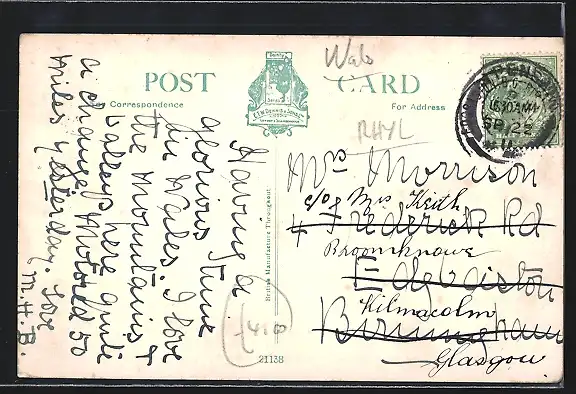 POST CARD
Correspondence
For Address
Wab
RHYL
Having a
glorious time
in Wales. I love
the mountains &
valleys here quite
a change. Motored 50
miles yesterday. Love
M.H.B.
British Manufacture Throughout
21138
Mrs Morrison
c/o Mrs Keith
4 Frederick Rd
Broomknowe
Edgbaston
Kilmacolm
Birmingham
Glasgow
10 30 AM
SP 12